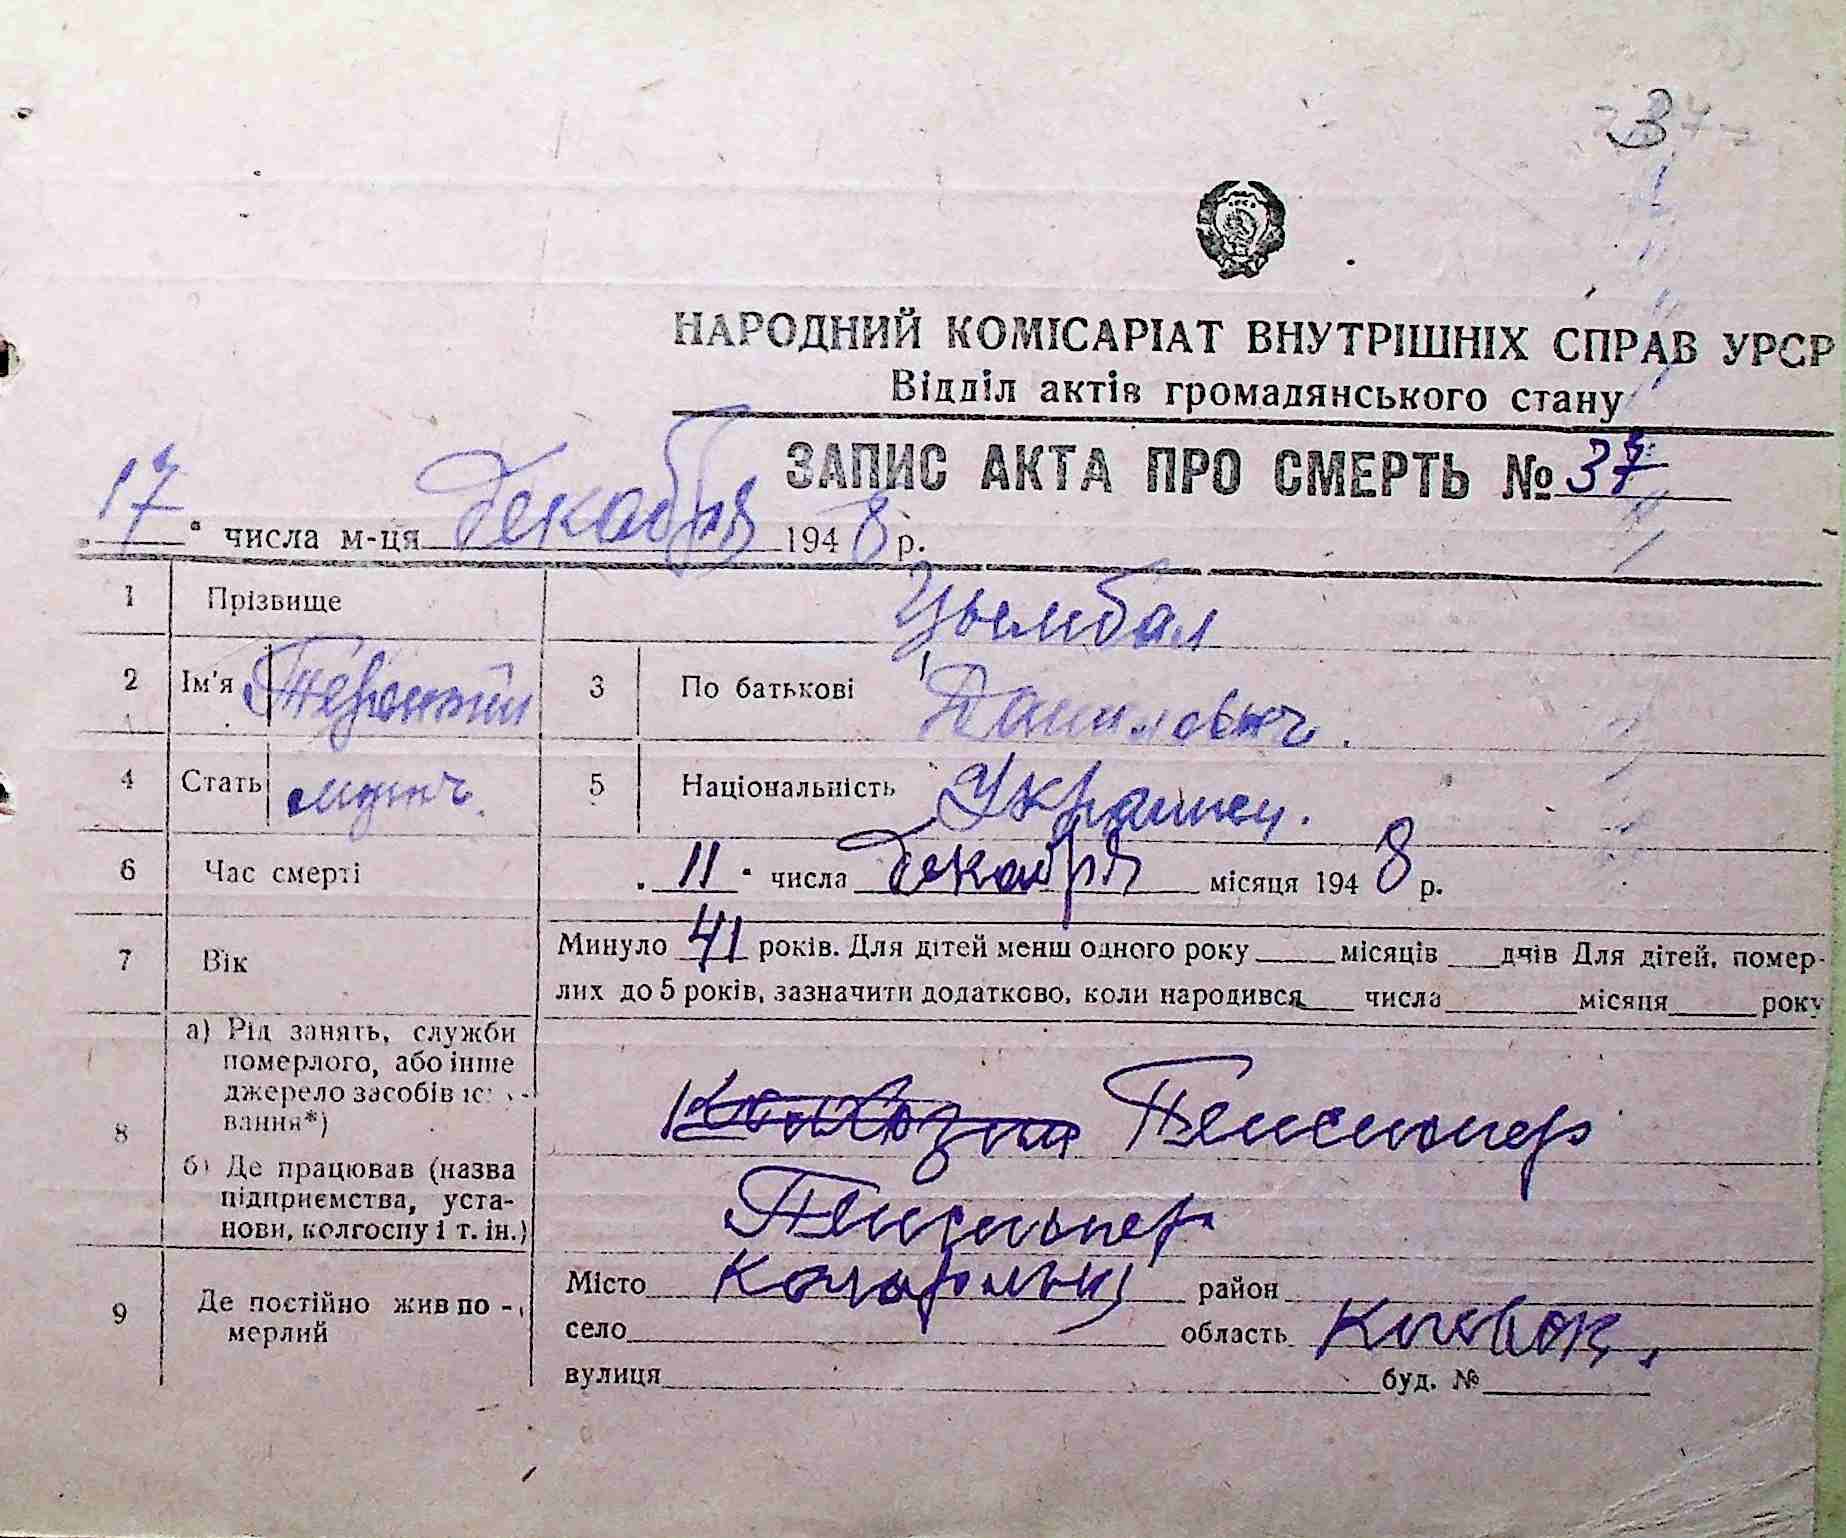 37
НАРОДНИЙ КОМІСАРІАТ ВНУТРІШНІХ СПРАВ УРСР
Відділ актів громадянського стану
ЗАПИС АКТА ПРО СМЕРТЬ № 37
„17“ числа м-ця декабря 1948 р.
1 Прізвище Цымбал
2 Ім'я Терентий 3 По батькові Данилович.
4 Стать мужч. 5 Національність Украинец.
6 Час смерті „11“ числа декабря місяця 1948 р.
7 Вік Минуло 41 років. Для дітей менш одного року місяців днів Для дітей, помер-
лих до 5 років, зазначити додатково, коли народився числа місяця року
8 а) Рід занять, служби
померлого, або інше
джерело засобів існу-
вання*) Пенсионер
б) Де працював (назва
підприємства, уста-
нови, колгоспу і т. ін.) Пенсионер
9 Де постійно жив по-
мерлий
Місто район
село область Киевск.
вулиця буд. №